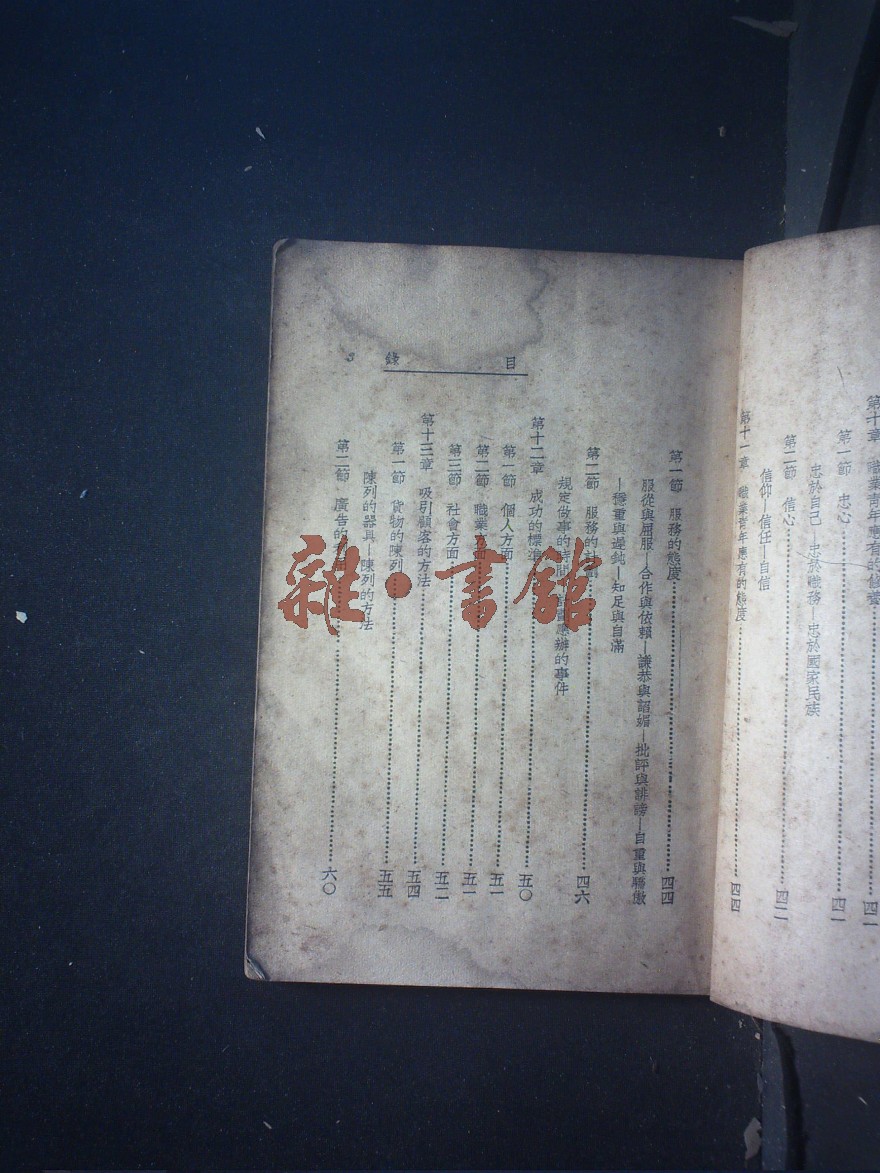 第十章 職業青年應有的修養……四一
第一節 忠心……四一
忠於自己—忠於職務—忠於國家民族
第二節 信心……四二
信仰—信任—自信
第十一章 職業青年應有的態度……四四
目錄 3
第一節 服務的態度……四四
服從與屈服—合作與依賴—謙恭與諂媚—批評與誹謗—自重與驕傲
—穩重與遲鈍—知足與自滿
第二節 服務的計劃……四六
規定做事的時間 應辦的事件
第十二章 成功的標準……五〇
第一節 個人方面……五一
第二節 職業方面……五一
第三節 社會方面……五二
第十三章 吸引顧客的方法……五四
第一節 貨物的陳列……五五
陳列的器具—陳列的方法
第二節 廣告的……六〇
雜·書館